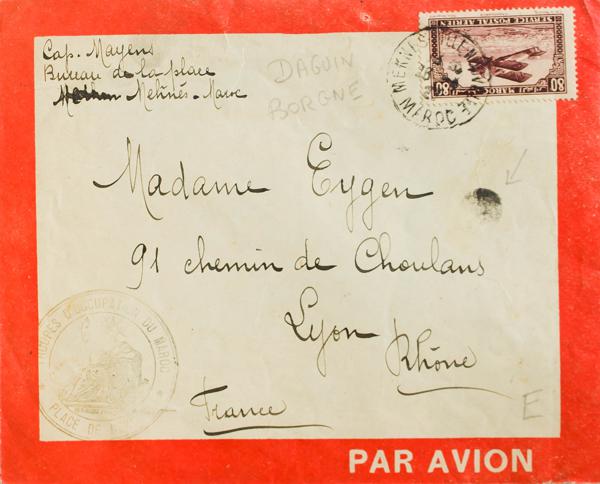 Cap. Mayens
Bureau de la place
Meknès - Maroc
DAGUIN
BORGNE
SERVICE POSTAL AERIEN
MAROC
80 80
MEKNES
MAROC
Madame Eygen
91 chemin de Choulans
Lyon
Rhône
France
TROUPES D'OCCUPATION DU MAROC
PLACE DE
E
PAR AVION